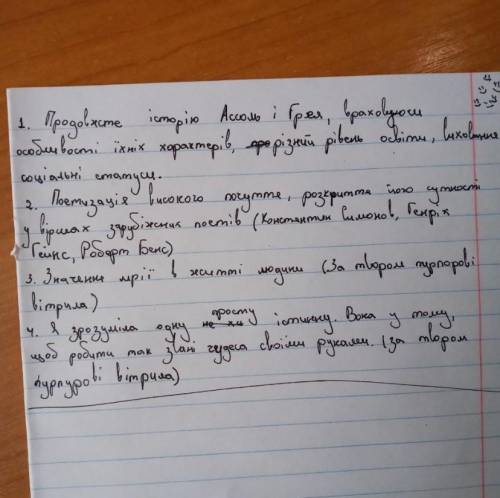 1. Продовжте історію Ассоль і Грея, враховуючи
особливості їхніх характерів, різний рівень освіти, виховання
соціальні статуси.
2. Поетизація високого почуття, розкриття його сутності
у віршах зарубіжних поетів (Константин Симонов, Генріх
Гейне, Роберт Бенс)
3. Значення мрії в житті людини (За твором пурпорові
вітрила)
просту
4. Я зрозуміла одну істинну. Вона у тому,
щоб робити так звані чудеса своїми руками. (за твором
пурпурові вітрила)